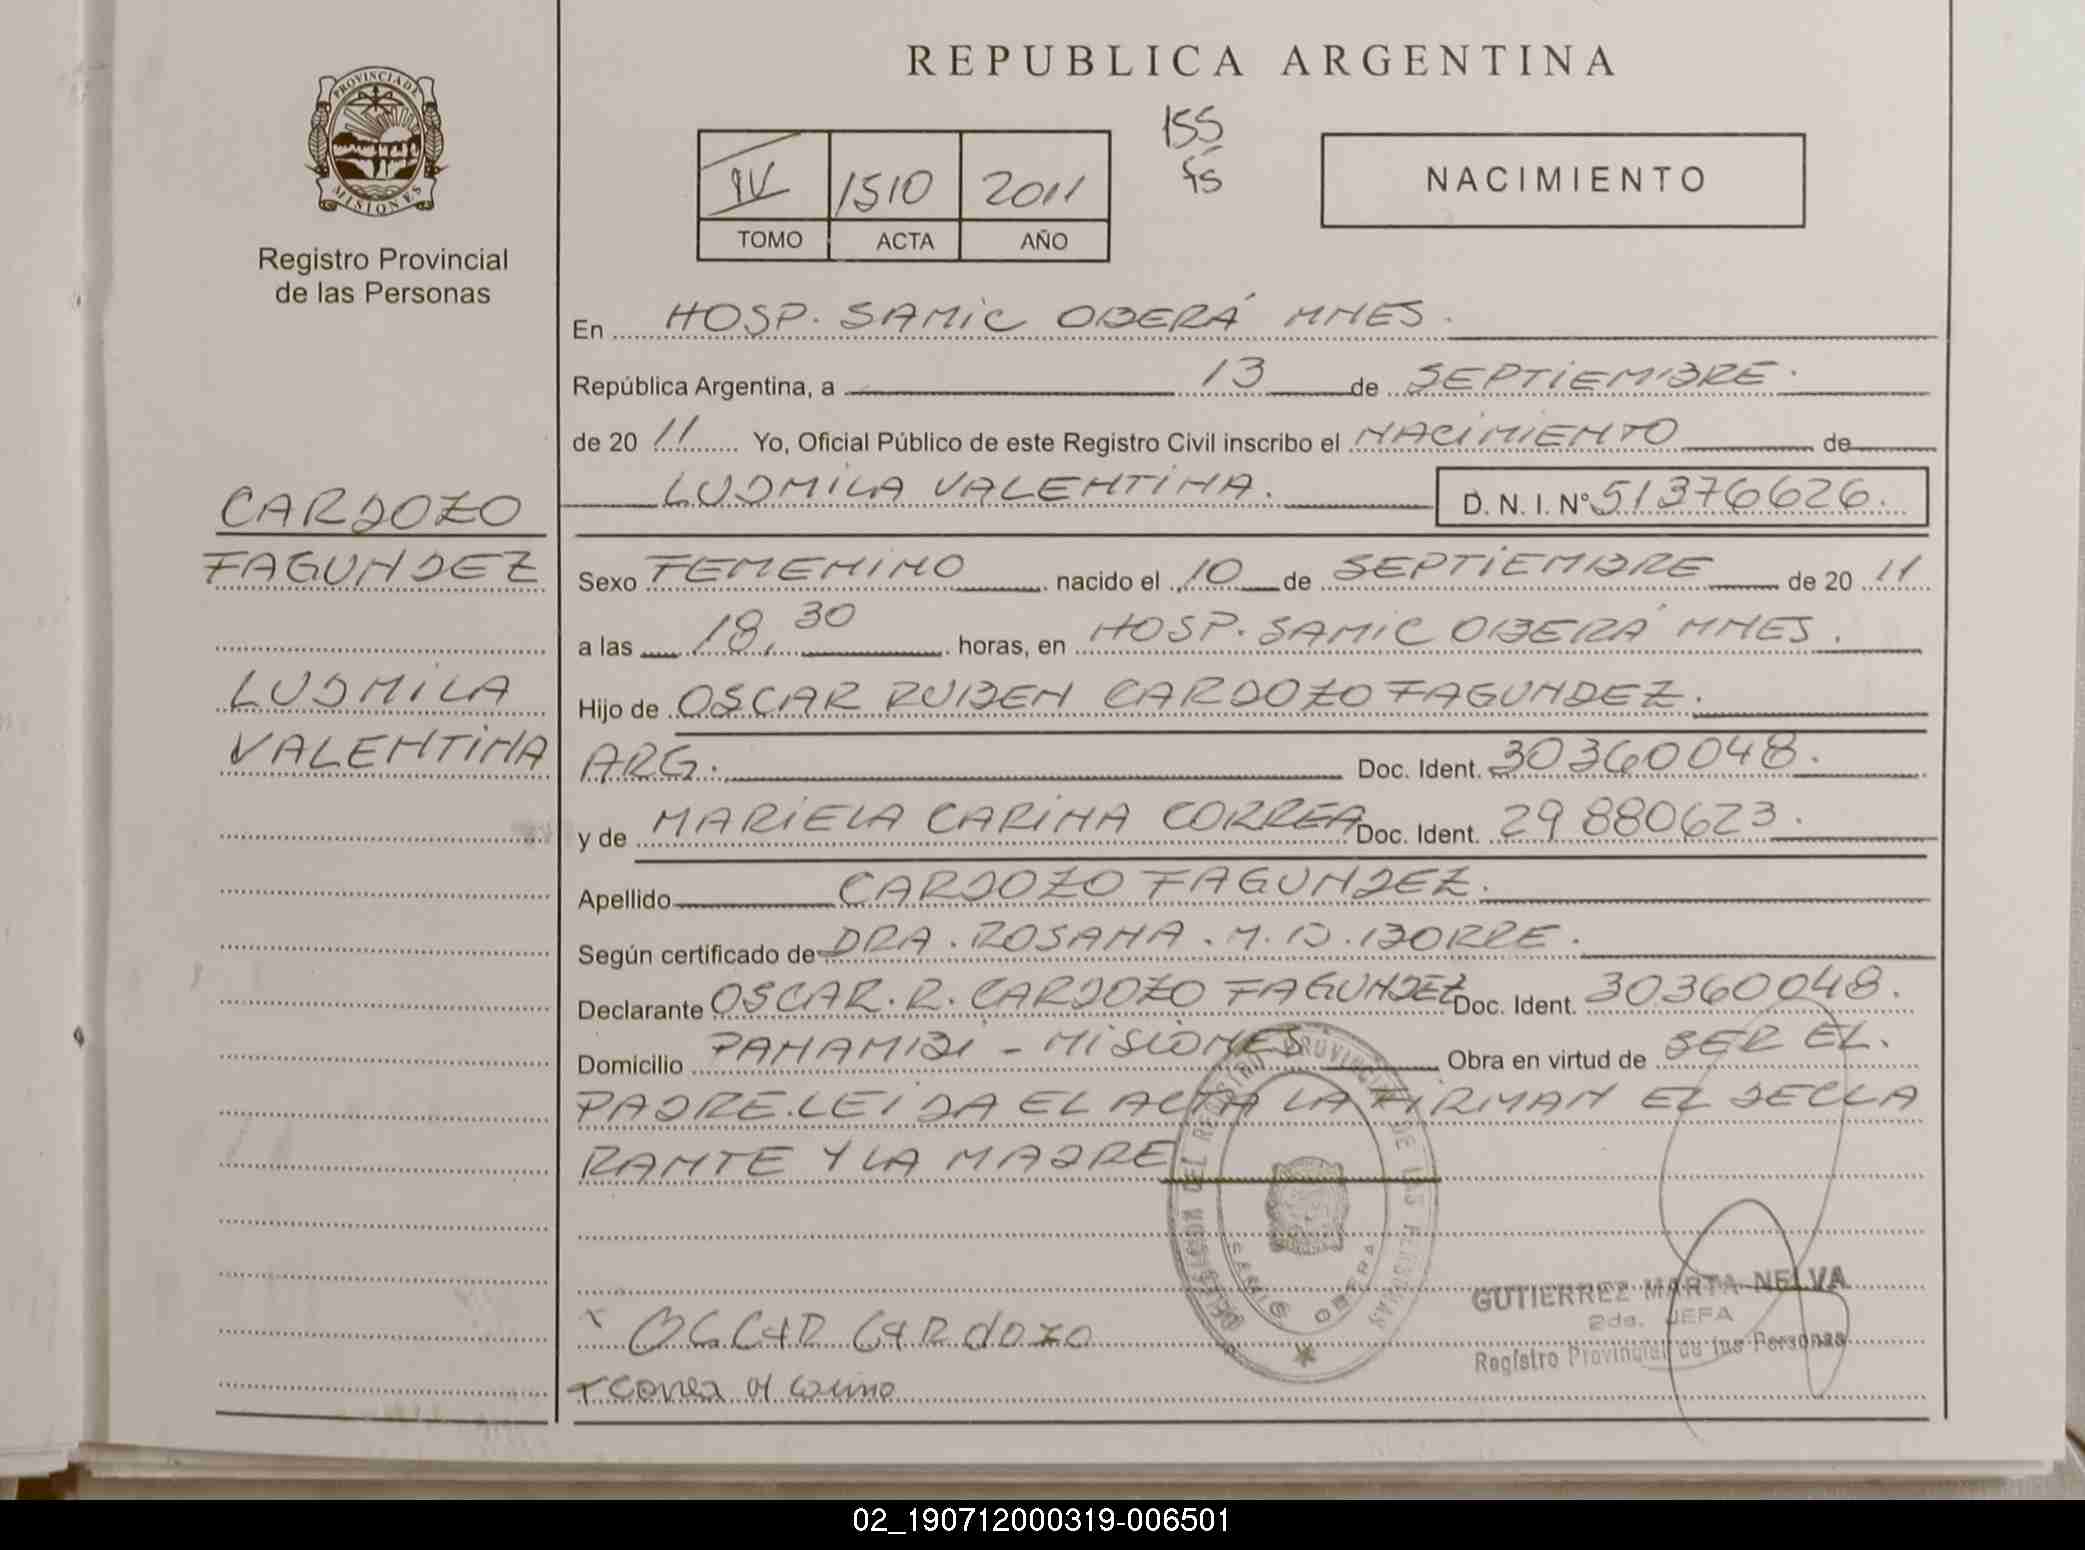 REPUBLICA ARGENTINA
PROVINCIA DE MISIONES
Registro Provincial
de las Personas
IV 1510 2011
TOMO ACTA AÑO
155
fs
NACIMIENTO
CARDOZO
FAGUNDEZ
LUDMILA
VALENTINA
En HOSP. SAMIC OBERÁ MNES.
República Argentina, a 13 de SEPTIEMBRE.
de 20 11 Yo, Oficial Público de este Registro Civil inscribo el NACIMIENTO de
LUDMILA VALENTINA. D. N. I. N° 51376626.
Sexo FEMENINO nacido el 10 de SEPTIEMBRE de 20 11
a las 18,30 horas, en HOSP. SAMIC OBERÁ MNES.
Hijo de OSCAR RUBEN CARDOZO FAGUNDEZ.
ARG. Doc. Ident. 30360048.
y de MARIELA CARINA CORREA Doc. Ident. 29880623.
Apellido CARDOZO FAGUNDEZ.
Según certificado de DRA. ROSANA. M. D. BORRE.
Declarante OSCAR. R. CARDOZO FAGUNDEZ Doc. Ident. 30360048.
Domicilio PANAMBI - MISIONES Obra en virtud de SER EL.
PADRE. LEIDA EL ACTA LA FIRMAN EL DECLA
RANTE Y LA MADRE
DELEGACION DEL REGISTRO PROVINCIAL DE LAS PERSONAS
SAMIC OBERA
GUTIERREZ MARTA NELVA
2da. JEFA
Registro Provincial de las Personas
x OSCAR CARDOZO
x Correa M
02_190712000319-006501